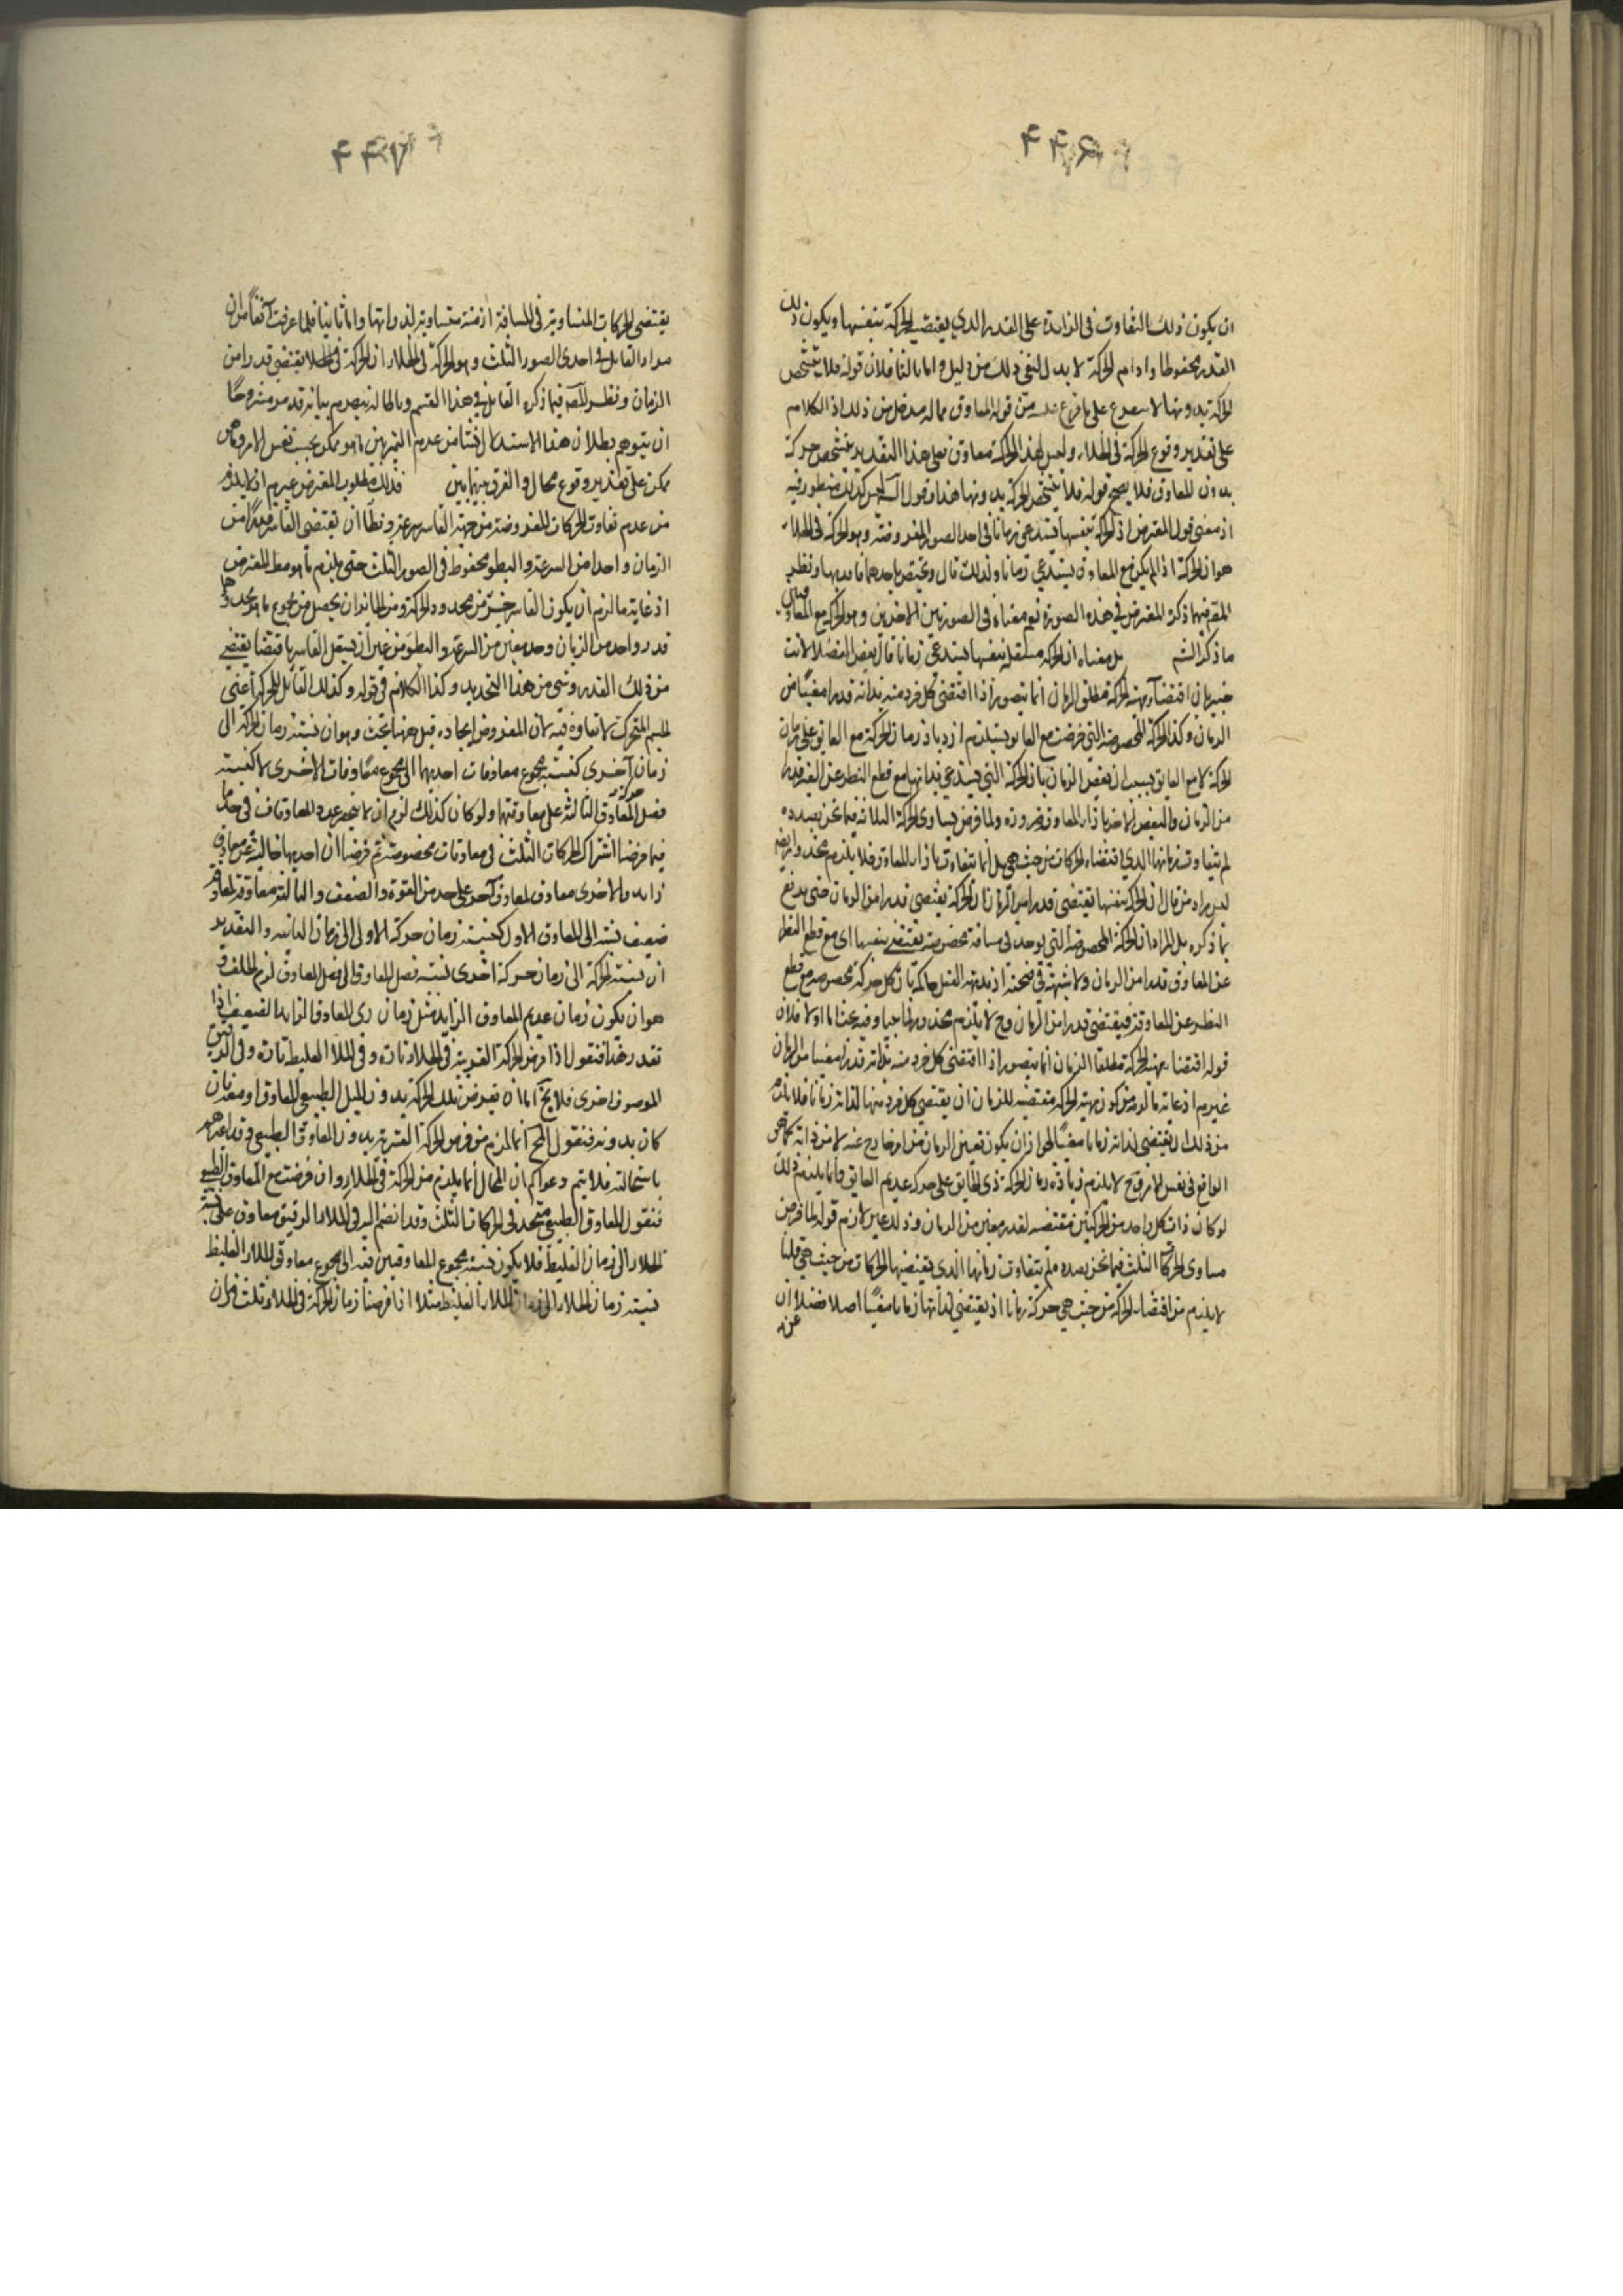 ٤٤٦
ان يكون ذلك التفاوت فى الزايدة على القدر الذي يقتضيه الحركة بنفسها ويكون ذلك
القدر محفوظا وادام الحركة لا بد لنفى ذلك من دليل واما بالثا فلان قوله فلا يتشخص
الحركة بدونها لا على ما قوله المعاوق مما له مدخل من ذلك اذ الكلام
على تقدير وقوع الحركة فى الخلاء وليس لهذا الحركة معاوق فعلى هذا التقدير يتشخص حركة
بدون المعاوق فلا يصح قوله فلا يتشخص الحركة بدونها هذا وقول ليس كذلك منظور فيه
اذ معنى قول المعترض ان الحركة بنفسها يستدعي زمانا فى احد الصور المفروضة وهو الحركة فى الخلاء
هو ان الحركة اذا لم يكن مع المعاوق يستدعي زمانا ولذلك قال ويختص باحدهما فاقدها ونظر
فيما ذكره المعترض فى هذه الصورة نعم معناه فى الصورتين الاخريين وهو الحركة مع المعاوق
ما ذكر الشم بل معناه ان الحركة مستقلة بنفسها يستدعي زمانا قال بعض الفضلا لانت
خبير بان اقتضآء مهية الحركة مطلق الزمان انما يتصور اذا اقتضى كل فرد منه بذاته قدرا معينا من
الزمان وكذا الحركة المخصوصة التي فرضت مع العايق يستلزم ازدياد زمان الحركة مع العايق على زمان
الحركة لا مع العايق بسبب ان بعض الزمان بازاء الحركة التي يستدعي بذاتها مع قطع النظر عن الغير قدرا
من الزمان والبعض الاخر بازاء المعاوق ضرورة ولما فرض تساوى الحركة الثلاثة فيما نحن بصدده
لم يتفاوت زمانها الذي اقتضاه الحركات من حيث هي بل انما يتفاوت بازاء المعاوق فلا يلزم محذور ايضا
ليس مراد من قال ان الحركة بنفسها يقتضى قدرا من الزمان ان الحركة يقتضى قدرا من الزمان حتى يدفع
بما ذكره بل المراد ان الحركة المخصوصة التي يوجد فى مسافة مخصوصة يقتضي بنفسها اى مع قطع النظر
عن المعاوق قدرا من الزمان ولا شبهة فى صحته اذ بديهة العقل حاكمة بان كل حركة مخصوصة مع قطع
النظر عن المعاوق فيقتضى قدرا من الزمان وح لا يلزم محذور وفيه بحث اما اولا فلان
قوله اقتضاء مهية الحركة مطلقا الزمان انما يتصور اذا اقتضى كل فرد منه بذاته قدرا معينا من الزمان
غير م اذ غاية ما لزم من كون مهية الحركة مقتضيه للزمان ان يقتضي كل فرد منها لذاته زمانا فلا يلزم
من ذلك ان يقتضى لذاته زمانا معينا لجواز ان يكون تعين الزمان من امر خارج عنه لا من ذاته كما هو
الواقع فى نفس الامر وح لا يلزم زيادة زمان الحركة ذى العايق على حركة عديم العايق وانما يلزم ذلك
لو كان ذات كل واحد من الحركتين مقتضيه لقدر معين من الزمان وذلك غير لازم قوله لما فرض
مساوى الحركات الثلث فيما نحن بصدده فلم يتفاوت زمانها الذي يقتضيها الحركات من حيث هي قلنا
لا يلزم من اقتضاء الحركة من حيث هي حركة زمانا ان يقتضي لذاتها زمانا معينا اصلا فضلا ان
٤٤٧
يقتضى الحركات المتساوية فى المسافة ازمنة متساوية لذواتها واما ثانيا فلما عرفت آنفا من ان
مراد القايل فى احدى الصور الثلث وهو الحركة فى الخلاء ان الحركة فى الخلا يقتضي قدرا من
الزمان ونظر فيما ذكره القايل فى هذا القسم وبيانه قد مر مشروحا
ان يتوهم بطلان هذا الاستدلال فشا من عدم التمييز بين ما هو ممكن بحسب نفس الامر وما هو
ممكن على تقدير وقوع محال والفرق بينهما بين فذلك مطلوب المعترض غير م اذ لا يلزم
من عدم تفاوت الحركات المفروضة من جهة القاسر سرعة وبطأ ان يقتضى القاسر قدرا من
الزمان واحدا من السرعة والبطوء محفوظ فى الصور الثلث حتى يلزم ما هو مط المعترض
اذ غاية ما لزم ان يكون القاسر جيز من محدود الحركة ومن الجايز ان يحصل من مجموع ما هو
قدر واحد من الزمان وحد معين من السرعة والبطوء من غير ان يستقل القاسر باقتضا يقتضي
من ذلك القدر وشى من هذا التحديد وكذا الكلام فى قوله وكذلك القايل للحركة اعنى
الجسم المتحرك لا تفاوت فيه لان المفروض اتحاده قيل ههنا بحث وهو ان نسبة زمان حركة الى
زمان آخرى كنسبة مجموع معاوقات احديهما الى مجموع معاوقات الاخرى لا كنسبة
فضل المعاوق الثالثة على معاوقتها ولو كان كذلك لزم ان لا
فيما فرضنا اشتراك الحركات الثلث فى معاوقات مخصوصة ثم فرضنا ان احديها خالية عن معاوق
زايد والاخرى معاوق لمعاوق آخر على حد من القوة والضعف والثالثة معاوقة لمعاوق
ضعيف نسبته الى المعاوق الاول كنسبة زمان حركة الاولى الى زمان الثانيه والتقدير
ان نسبة الحركة الى زمان حركة اخرى نسبة فضل المعاوق الى فضل المعاوق لزم الخلف
هو ان يكون زمان عديم المعاوق الزايد مثل زمان ذى المعاوق الزايد الضعيف اذا
تقدر هذا فنقول اذا فرض الحركة القسرية فى الخلاء تارة وفى الملا الغليظ تارة وفى الرقيق
الموصوف اخرى فلا يخ اما ان يفرض تلك الحركة بدون الميل الطبيعي المعاوق او مع فان
كان بدونه فنقول المح انما لزم من فرض الحركة القسرية بدون المعاوق الطبيعي وقد اعترفتم
باستحالته فلا يتم دعواكم ان المحال انما يلزم من الحركة فى الخلاء وان فرضت مع المعاوق الطبيعي
فنقول المعاوق الطبيعي متحد فى الحركات الثلث وقد انضم اليه فى الملاء الرقيق معاوق على نسبة
الخلاء الى زمان الغليظ فلا يكون نسبة مجموع المعاوقين فيه الى مجموع معاوقى الملاء الغليظ
نسبة زمان الخلاء الى زمان الملاء الغليظ مثلا اذا فرضنا زمان الحركة فى الخلاء ثلث زمان